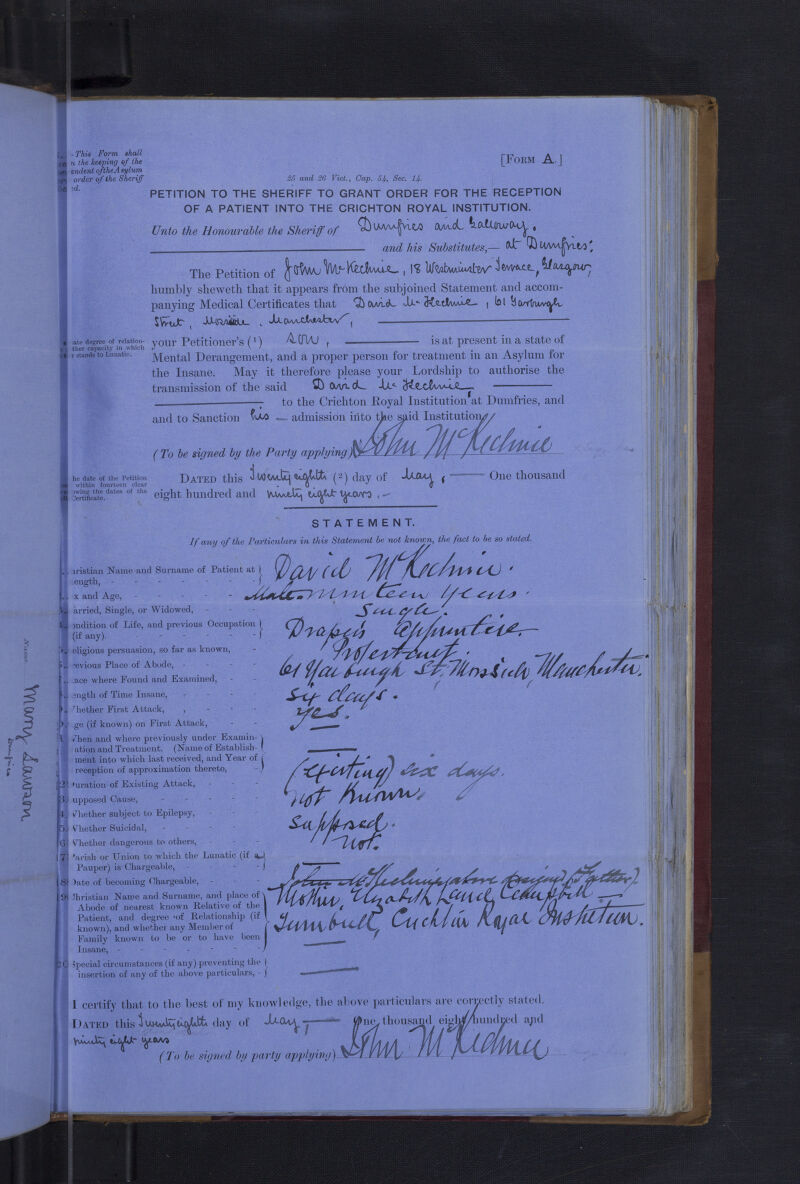 -This Form shall
the keeping of the
endent of the Asylum
order of the Sheriff
[FORM A.]
25 and 26 Vict., Cap. 54, Sec. 14.
PETITION TO THE SHERIFF TO GRANT ORDER FOR THE RECEPTION
OF A PATIENT INTO THE CRICHTON ROYAL INSTITUTION.
Unto the Honourable the Sheriff of Dumfries and Galloway,
and his Substitutes,— at Dumfries:
The Petition of John McKechnie, 18 Westminster Terrace, Glasgow,
humbly sheweth that it appears from the subjoined Statement and accom-
panying Medical Certificates that David McKechnie, 61 Yarburgh
Street, Moss Side, Manchester,
ate degree of relation-
ther capacity in which
stands to Lunatic.
your Petitioner's (1) son, is at present in a state of
Mental Derangement, and a proper person for treatment in an Asylum for
the Insane. May it therefore please your Lordship to authorise the
transmission of the said David McKechnie
to the Crichton Royal Institution at Dumfries, and
and to Sanction his admission into the said Institution.
(To be signed by the Party applying) John McKechnie
he date of the Petition
within fourteen clear
owing the dates of the
Certificate.
DATED this Twenty eighth (2) day of May, One thousand
eight hundred and ninety eight years.-
STATEMENT.
If any of the Particulars in this Statement be not known, the fact to be so stated.
ristian Name and Surname of Patient at
length, David McKechnie.
x and Age, Male. nineteen years.
arried, Single, or Widowed, Single.
ondition of Life, and previous Occupation
(if any). Draper's apprentice.
eligious persuasion, so far as known, Protestant
revious Place of Abode, 61 Yarburgh St, Moss Side, Manchester.
ace where Found and Examined,
ength of Time Insane, Six days.
Whether First Attack, Yes.
ge (if known) on First Attack, —
When and where previously under Examin-
ation and Treatment. (Name of Establish-
ment into which last received, and Year of
reception of approximation thereto, —
Duration of Existing Attack, (existing) six days.
13 upposed Cause, not Known.
14 Whether subject to Epilepsy,
15 Whether Suicidal, Supposed.
16 Whether dangerous to others, not.
17 Parish or Union to which the Lunatic (if a
Pauper) is Chargeable, —
18 Date of becoming Chargeable,
19 Christian Name and Surname, and place of
Abode of nearest known Relative of the
Patient, and degree of Relationship (if
known), and whether any Member of
Family known to be or to have been
Insane,
John McKechnie above designed (Father).
Mother, Elizabeth Campbell
Turnbull, Crichton Royal Institution.
20 Special circumstances (if any) preventing the
insertion of any of the above particulars, —
I certify that to the best of my knowledge, the above particulars are correctly stated.
DATED this Twenty eighth day of May, One thousand eight hundred and
ninety eight years
(To be signed by party applying) John McKechnie
Name
Mary Lawson
Dumfries